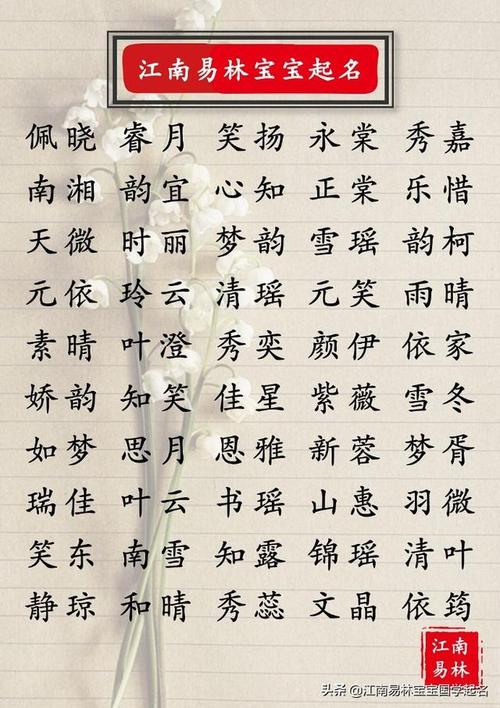 江南易林宝宝起名
佩晓 睿月 笑扬 永棠 秀嘉
南湘 韵宜 心知 正棠 乐惜
天微 时丽 梦韵 雪瑶 韵柯
元依 玲云 清瑶 元笑 雨晴
素晴 叶澄 秀奕 颜伊 依家
娇韵 知笑 佳星 紫薇 雪冬
如梦 思月 恩雅 新蓉 梦胥
瑞佳 叶云 书瑶 山惠 羽微
笑东 南雪 知露 锦瑶 清叶
静琼 和晴 秀蕊 文晶 依筠
江南
易林
头条 @江南易林宝宝国学起名